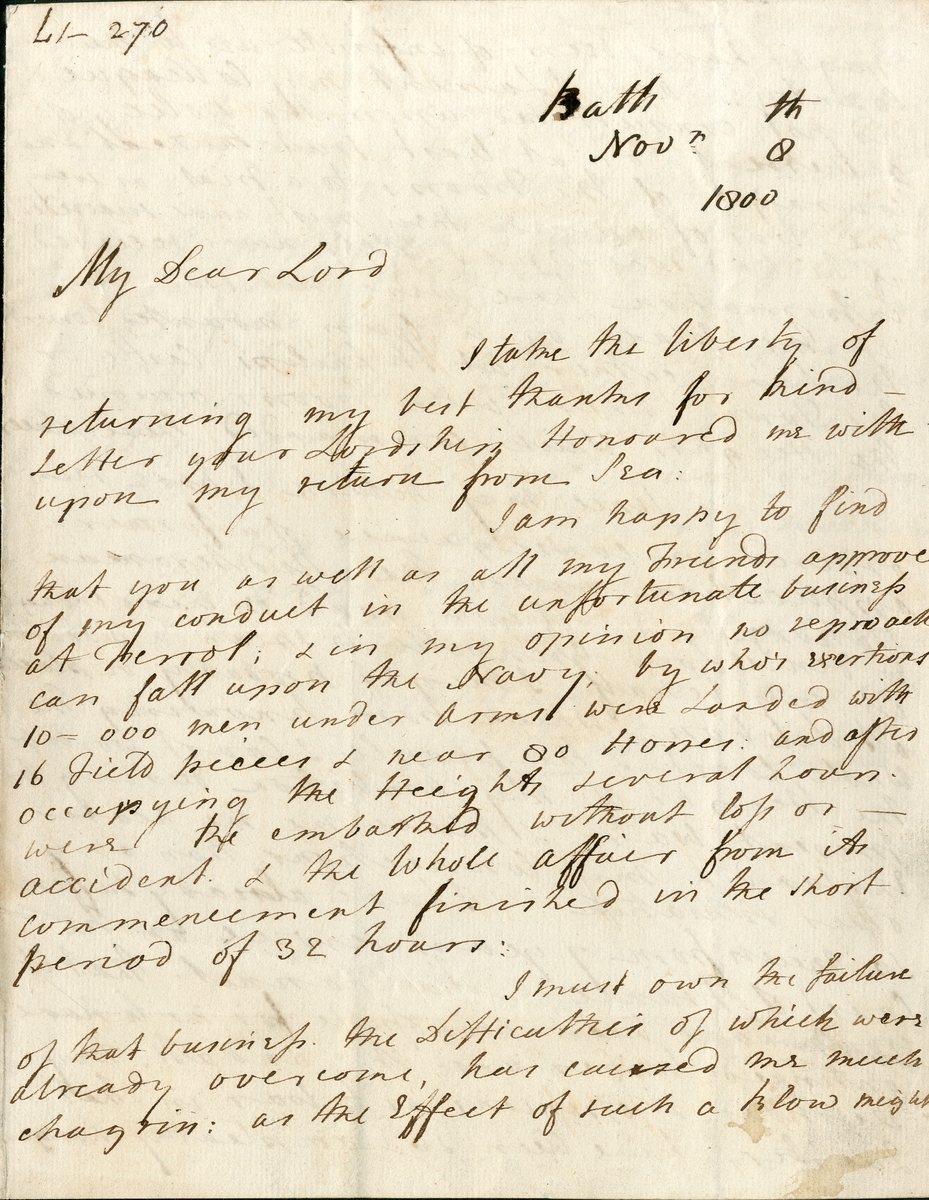 L1- 270
Bath th
Novr 8
1800
My Dear Lord
I take the liberty of
returning my best thanks for kind -
Letter your Lordship Honoured me with
upon my return from Sea:
I am happy to find
that you as well as all my Friends approve
of my conduct in the unfortunate business
at Ferrol; & in my opinion no reproach
can fall upon the Navy; by who's exertions
10-000 men under Arms were Landed with
16 Field pieces & near 80 Horses: and after
occupying the Heights several hours.
were the embarked without loss or -
accident. & the Whole affair from its
commencement finished in the short
period of 32 hours:
I must own the failure
of that business. the Difficulthis of which were
already overcome, has caused me much
chagrin: as the Effect of such a Blow might